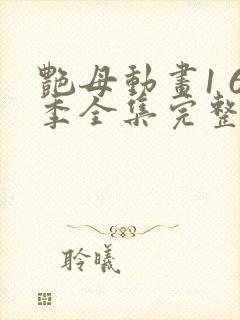 艷母動畫1 6
季全集完整
聆曦